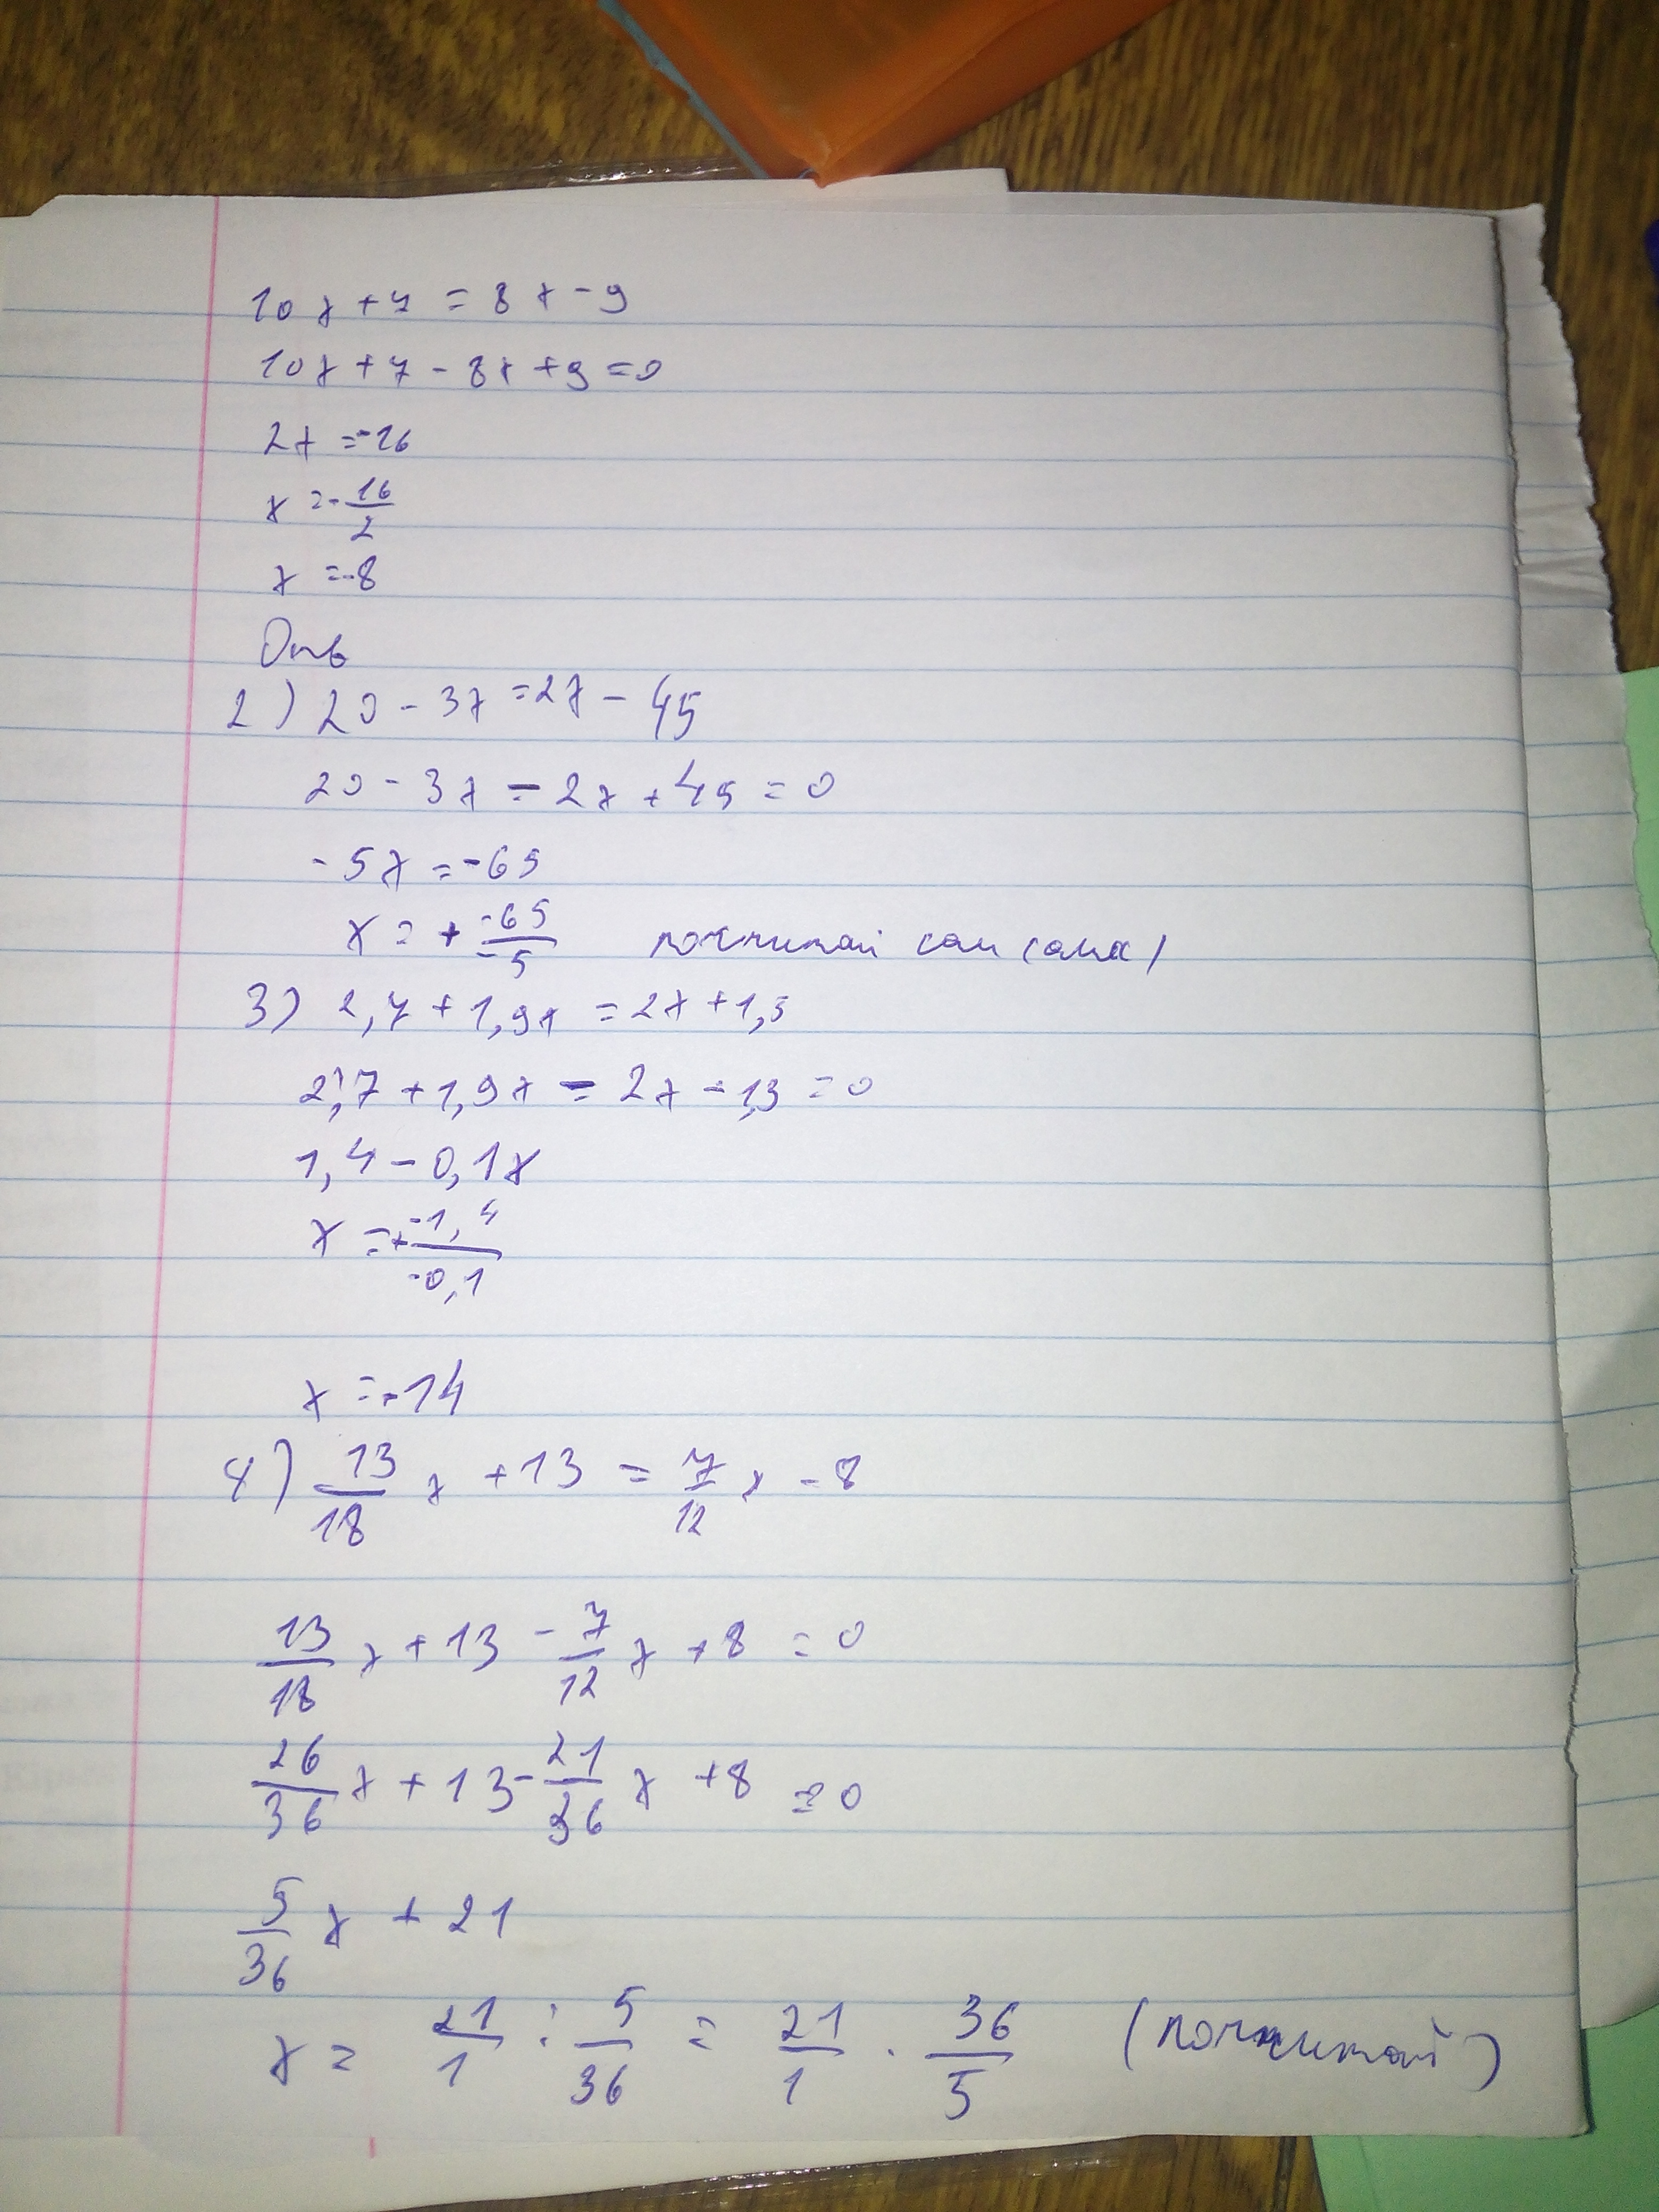 10x + 7 = 8x - 9
10x + 7 - 8x + 9 = 0
2x = -16
x = - 16/2
x = -8
Отв
2) 20 - 3x = 2x - 45
20 - 3x - 2x + 45 = 0
-5x = -65
x = + -65/-5 посчитай сам(сама)
3) 2,7 + 1,9x = 2x + 1,3
2,7 + 1,9x - 2x - 1,3 = 0
1,4 - 0,1x
x = + -1,4/-0,1
x = -14
4) 13/18 x + 13 = 7/12 x - 8
13/18 x + 13 - 7/12 x + 8 = 0
26/36 x + 13 - 21/36 x + 8 = 0
5/36 x + 21
x = 21/1 : 5/36 = 21/1 · 36/5 (посчитай)